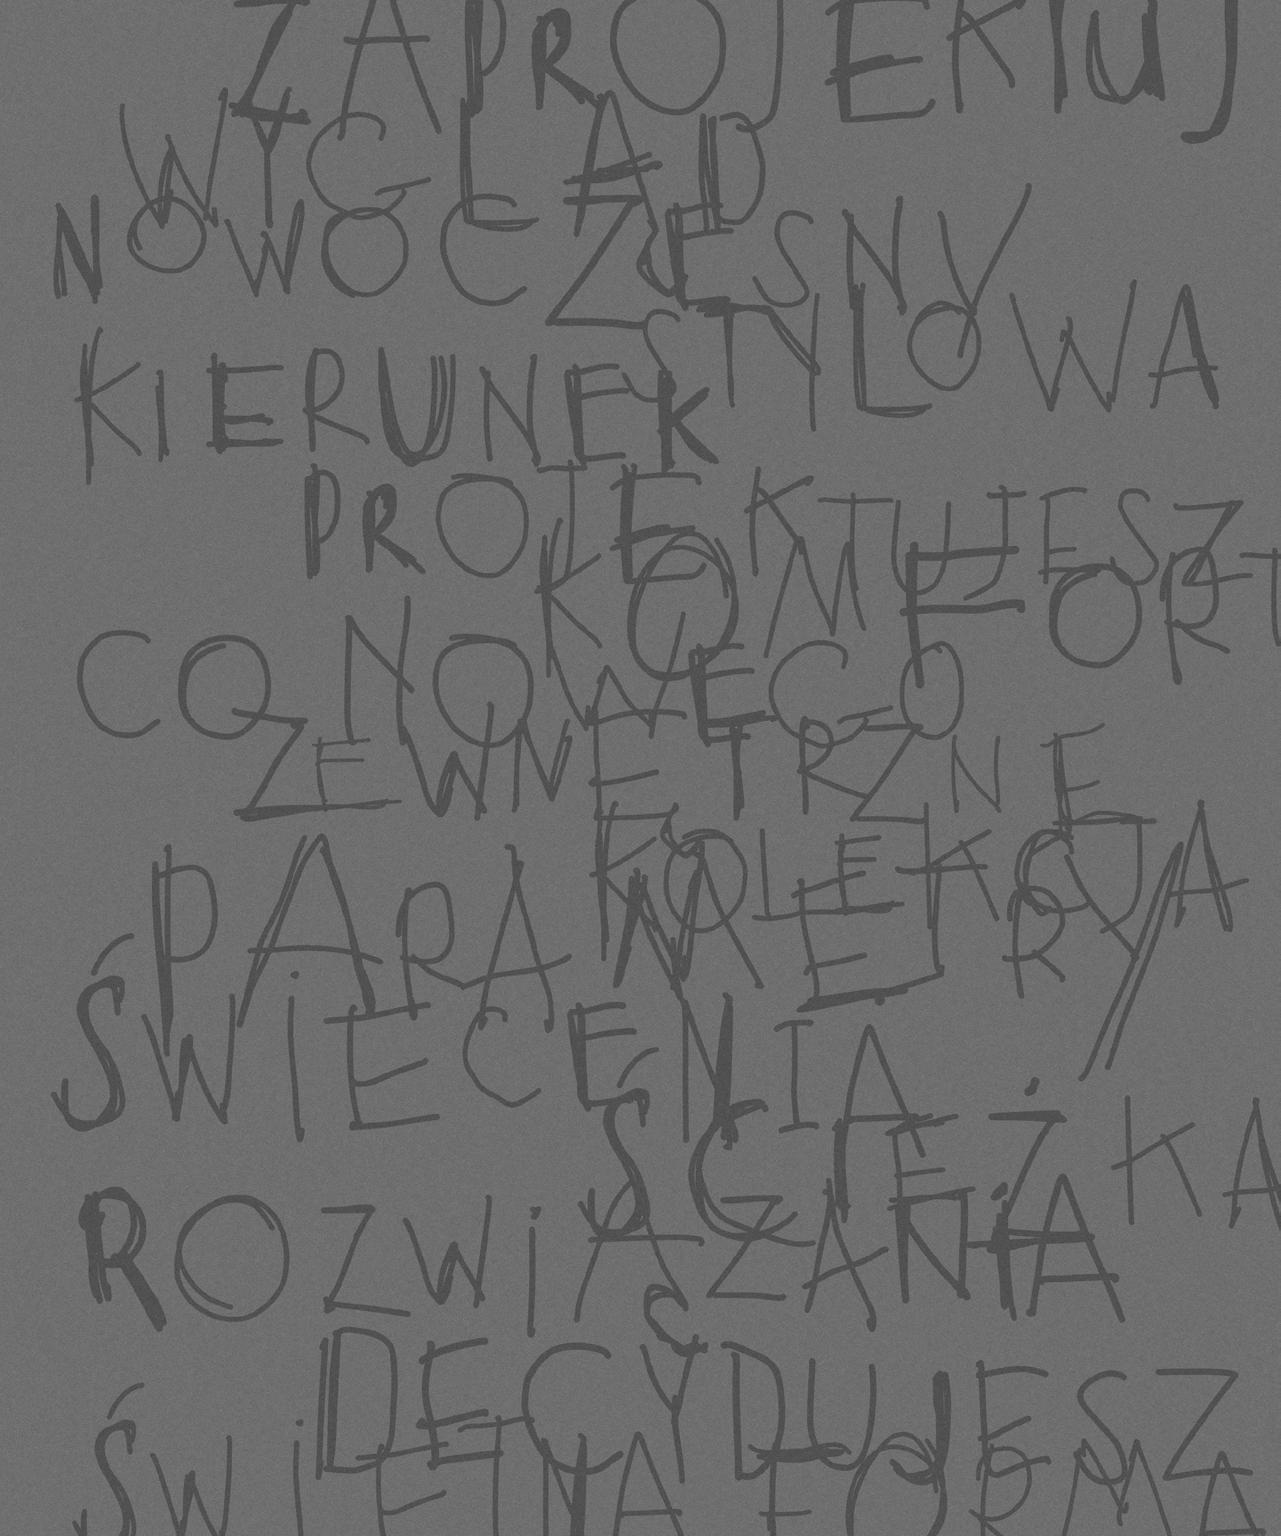 ZAPROJEKTUJ
WYGLĄD
NOWOCZESNY
STYLOWA
KIERUNEK
PROJEKTUJESZ
KOMFORT
CO NOWEGO
ZEWNĘTRZNE
KOLEKCJA
PARAMETRY
ŚWIECENIA
ŚCIEŻKA
ROZWIĄZANIA
DECYDUJESZ
ŚWIETNA FORMA